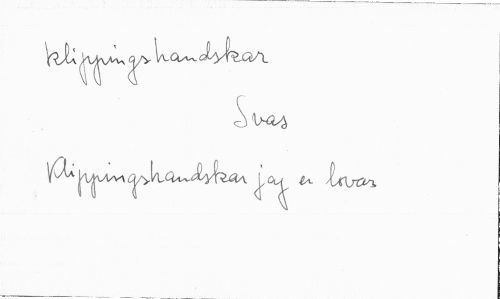 klippingshandskar
Svas
Klippingshandskar jag er lovar